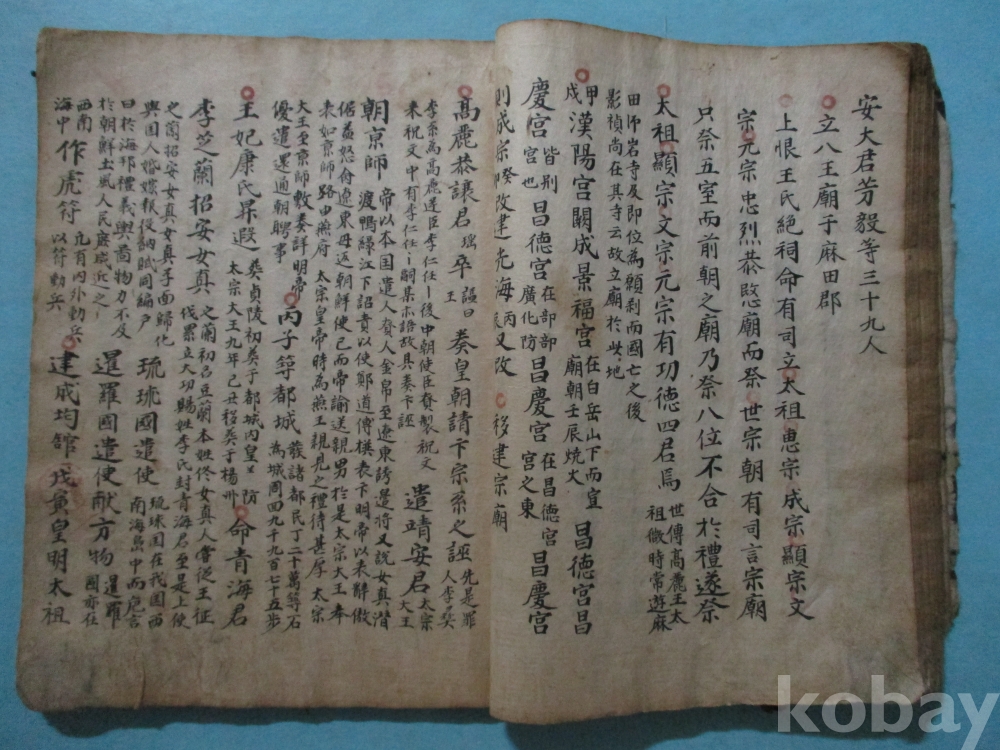 安大君芳毅等三十九人
立八王廟于麻田郡
上恨王氏絶祠命有司立太祖惠宗成宗顯宗文
宗元宗忠烈恭愍廟而祭世宗朝有司言宗廟
只祭五室而前朝之廟乃祭八位不合於禮遂祭
太祖顯宗文宗元宗有功德四君焉 世傳高麗王太
祖微時常遊麻
田師岩寺及即位為願刹而國亡之後
影禎尚在其寺云故立廟於此地
甲
戌 漢陽宮闕成景福宮 在白岳山下而宣
廟朝壬辰燒火 昌德宮昌
慶宮 皆別
宮也 昌德宮 在部部
廣化防 昌慶宮 在昌德宮
宮之東 昌慶宮
則成宗癸卯改建光海丙辰又改 移建宗廟
高麗恭讓君瑶卒 諡曰
王 奏皇朝請卞宗系之誣 先是罪
人李
李宗為高麗逆臣李仁任后中朝使臣賫製祝文
来祝文中有李仁任嗣某亦語故具奏卞誣 遣靖安君 太宗
大王
朝京師 帝以本国遣人賫人金帛至遼東誘邊將又說女真潜
渡鴨綠江下詔責以使鄭道傳撰表卞明帝以来辭傲
倨益怒命遼東毋返朝鮮使已而帝諭送親男於是太宗大王奉
表如京師路由燕府 太宗皇帝時為燕王親見之禮待甚厚 太宗
大王至京師敷奏詳明帝
優遣還通朝聘事 丙子築都城 發諸都民丁二十萬等石
為城周四九千九百七十五步
王妃康氏昇遐 葬貞陵初葬于都城內皇華防
太宗大王九年己丑移葬于楊州 命青海君
李芝蘭招安女真 之蘭初名豆蘭本姓佟女真人嘗從王征
伐累立大功賜姓李氏封青海君至是上使
之蘭招安女真女真手面歸化
與国人婚嫁報役納賦同編戶 琉球國遣使 琉球国在我国西
南海島中而危言
曰於海邦禮義與圖物力不及
於朝鮮土風人民庶或近之 暹羅國遣使献方物 暹羅
國亦在
西南
海中 作虎符 凡有內外動兵
以符動兵 建成均館 戊寅皇明太祖